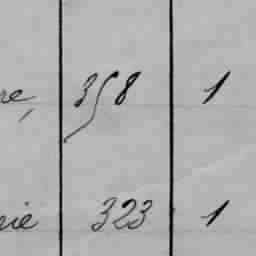 re, 358 1
nie 323 1